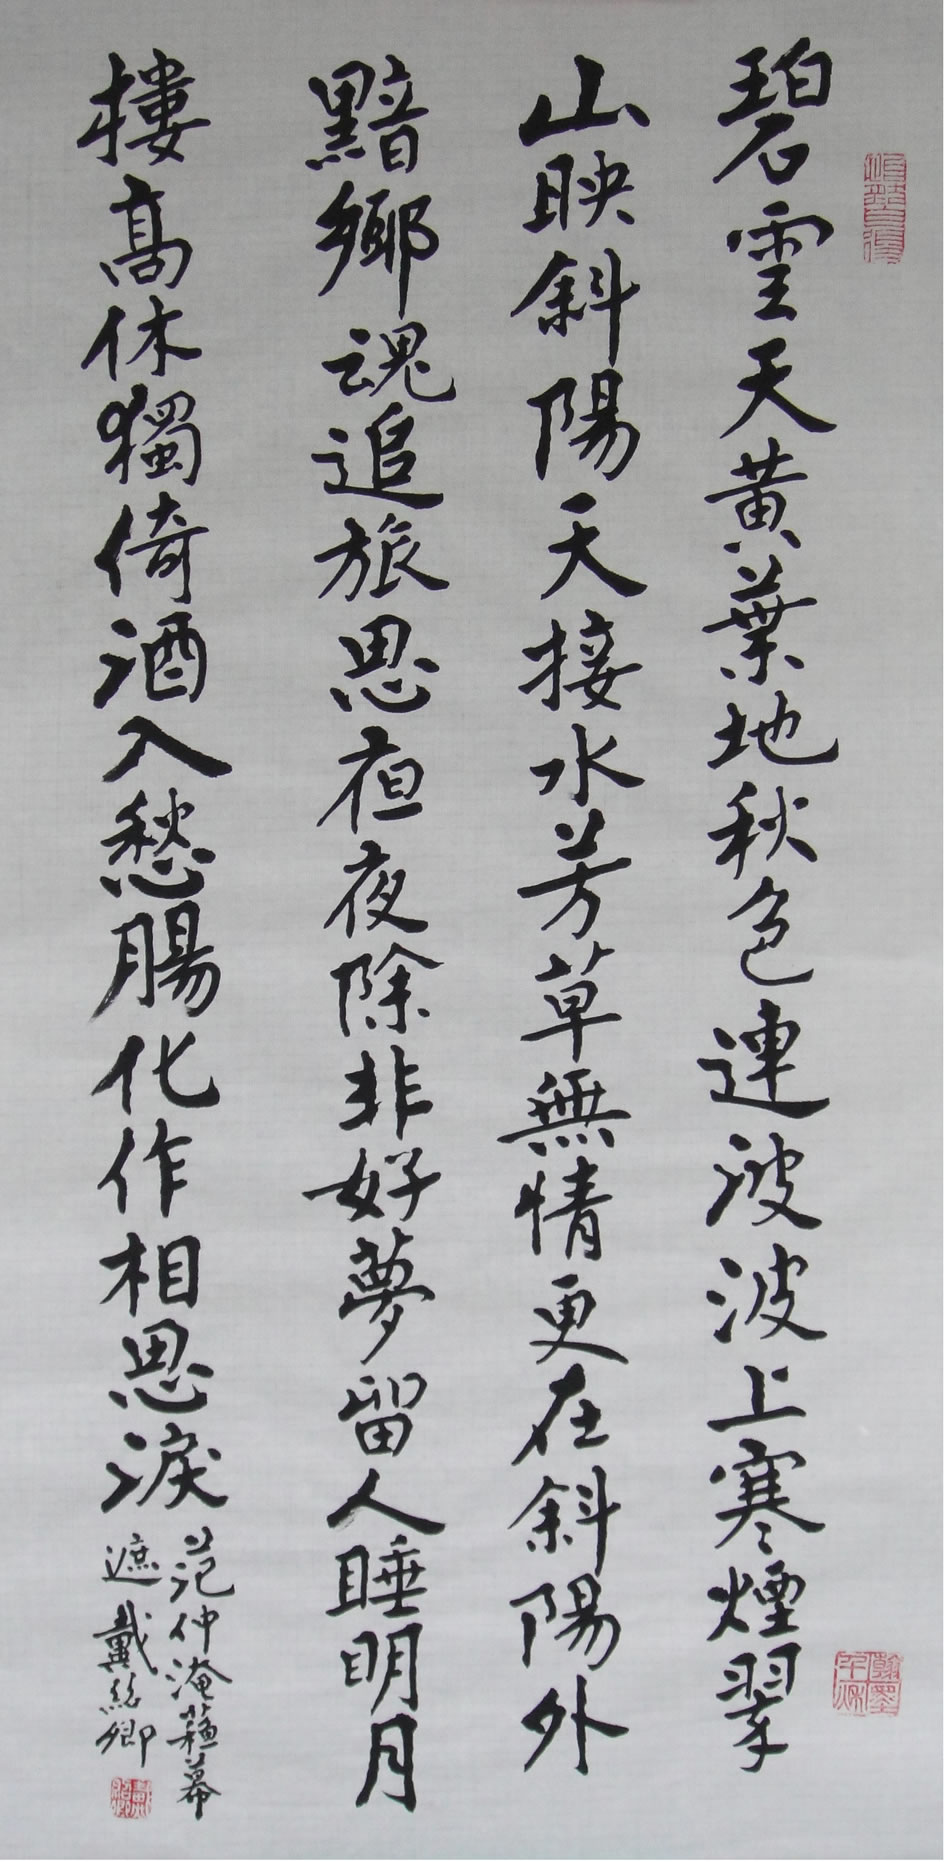 碧雲天黃葉地秋色連波波上寒煙翠
山映斜陽天接水芳草無情更在斜陽外
黯鄉魂追旅思夜夜除非好夢留人睡明月
樓高休獨倚酒入愁腸化作相思淚
范仲淹蘇幕
遮 戴紹卿